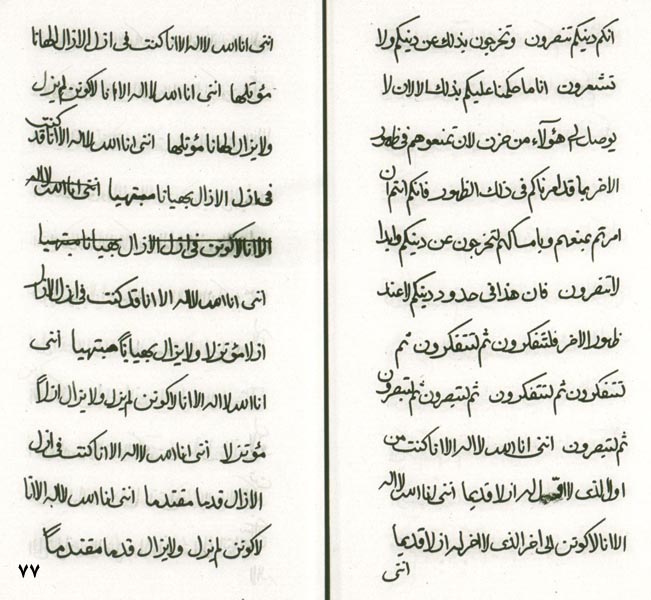 انکم دینکم تنصرون و تخرجون بذلک عن دینکم و لا
تشعرون انا ما حکمنا علیکم بذلک الا لان لا
یوصل الی هؤلاء من حزن لان تمنعوهم فی ظهور
الاخر بما قد امرناکم فی ذلک الظهور فانکم انتم ان
امرتم بمنعهم و بامساکهم لتخرجون عن دینکم و ابدا
لا تنصرون فان هذا فی حدود دینکم لا عند
ظهور الاخر فلتتفکرون ثم لتتفکرون ثم
تتفکرون ثم لتتفکرون ثم لتبصرون ثم لتبصرون
ثم لتبصرون اننی انا الله لا اله الا انا کنت من
اول الذی لا اول له ازلا قدیما اننی انا الله لا اله
الا انا لاکونن الی اخر الذی لا اخر له ازلا قدیما
اننی
اننی انا الله لا اله الا انا کنت فی ازل الازال الها نا
مؤتلها اننی انا الله لا اله الا انا لاکونن لم یزل
و لا یزال الها نا مؤتلها اننی انا الله لا اله الا انا قد کنت
فی ازل الازال بهیانا مبتهیا اننی انا الله لا اله
الا انا لاکونن فی ازل الازال بهیانا مبتهیا
اننی انا الله لا اله الا انا قد کنت فی ازل الازال
ازلا مؤتزلا و لا یزال بهیانا مبتهیا اننی
انا الله لا اله الا انا لاکونن لم یزل و لا یزال ازلا
مؤتزلا اننی انا الله لا اله الا انا کنت فی ازل
الازال قدما مقتدما اننی انا الله لا اله الا انا
لاکونن لم یزل و لا یزال قدما مقتدما
۷۷